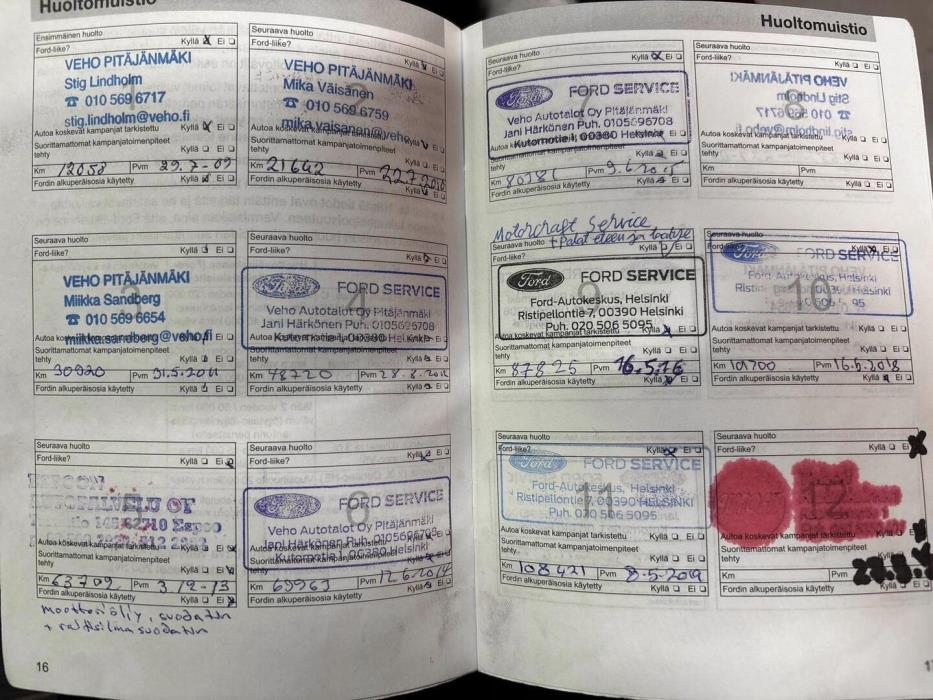 Huoltomuistio
Ensimmäinen huolto
Ford-liike? Kyllä Ei
VEHO PITÄJÄNMÄKI
Stig Lindholm
☎ 010 569 6717
stig.lindholm@veho.fi
Autoa koskevat kampanjat tarkistettu Kyllä Ei
Suorittamattomat kampanjatoimenpiteet
tehty Kyllä Ei
Km 12058 Pvm 29.7-09
Fordin alkuperäisosia käytetty Kyllä Ei
Seuraava huolto
Ford-liike? Kyllä Ei
VEHO PITÄJÄNMÄKI
Mika Väisänen
☎ 010 569 6759
mika.vaisanen@veho
Autoa koskevat kampanjat tarkistettu Kyllä Ei
Suorittamattomat kampanjatoimenpiteet
tehty Kyllä Ei
Km 21642 Pvm 22.7.2010
Fordin alkuperäisosia käytetty Kyllä Ei
3
Seuraava huolto
Ford-liike? Kyllä Ei
VEHO PITÄJÄNMÄKI
Miikka Sandberg
☎ 010 569 6654
miikka.sandberg@veho.fi
Autoa koskevat kampanjat tarkistettu Kyllä Ei
Suorittamattomat kampanjatoimenpiteet
tehty Kyllä Ei
Km 30920 Pvm 31.5.2011
Fordin alkuperäisosia käytetty Kyllä Ei
4
Seuraava huolto
Ford-liike? Kyllä Ei
Ford FORD SERVICE
Veho Autotalot Oy Pitäjänmäki
Jani Härkönen Puh. 0105696708
Autoa koskevat kampanjat tarkistettu Kyllä Ei
Suorittamattomat kampanjatoimenpiteet
tehty Kyllä Ei
Km 48720 Pvm 28.8.2012
Fordin alkuperäisosia käytetty Kyllä Ei
Seuraava huolto
Ford-liike? Kyllä Ei
02710 Espoo
Autoa koskevat kampanjat tarkistettu Kyllä Ei
Suorittamattomat kampanjatoimenpiteet
tehty Kyllä Ei
Km 63709 Pvm 3-12-13
Fordin alkuperäisosia käytetty Kyllä Ei
moottoriöljy, suodatin
+ raitisilmasuodatin
6
Seuraava huolto
Ford-liike? Kyllä Ei
Ford FORD SERVICE
Veho Autotalot Oy Pitäjänmäki
Jani Härkönen Puh. 0105696708
Kutomotie 1, 00380 Helsinki
Autoa koskevat kampanjat tarkistettu
Suorittamattomat kampanjatoimenpiteet
tehty Kyllä Ei
Km 69963 Pvm 12.6.2014
Fordin alkuperäisosia käytetty Kyllä Ei
16
Huoltomuistio
7
Seuraava huolto
Ford-liike? Kyllä Ei
Ford FORD SERVICE
Veho Autotalot Oy Pitäjänmäki
Jani Härkönen Puh. 0105696708
Kutomotie 1, 00380 Helsinki
Suorittamattomat kampanjatoimenpiteet
tehty Kyllä Ei
Km 80281 Pvm 9.6.2015
Fordin alkuperäisosia käytetty Kyllä Ei
8
Seuraava huolto
Ford-liike? Kyllä Ei
Autoa koskevat kampanjat tarkistettu Kyllä Ei
Suorittamattomat kampanjatoimenpiteet
tehty Kyllä Ei
Km Pvm
Fordin alkuperäisosia käytetty Kyllä Ei
Motorcraft Service
9
Seuraava huolto
Ford-liike? Kyllä Ei
Ford FORD SERVICE
Ford-Autokeskus, Helsinki
Ristipellontie 7, 00390 Helsinki
Puh. 020 506 5095
Autoa koskevat kampanjat tarkistettu Kyllä Ei
Suorittamattomat kampanjatoimenpiteet
tehty Kyllä Ei
Km 87825 Pvm 16.5.16
Fordin alkuperäisosia käytetty Kyllä Ei
10
Seuraava huolto
Ford-liike? Kyllä Ei
Ford FORD SERVICE
Ford-Autokeskus, Helsinki
Autoa koskevat kampanjat tarkistettu Kyllä Ei
Suorittamattomat kampanjatoimenpiteet
tehty Kyllä Ei
Km 101700 Pvm 16.5.2018
Fordin alkuperäisosia käytetty Kyllä Ei
11
Seuraava huolto
Ford-liike? Kyllä Ei
Ford FORD SERVICE
Ford-Autokeskus, Helsinki
Ristipellontie 7, 00390 HELSINKI
Puh. 020 506 5095
Autoa koskevat kampanjat tarkistettu Kyllä Ei
Suorittamattomat kampanjatoimenpiteet
tehty Kyllä Ei
Km 108421 Pvm 8-5-2019
Fordin alkuperäisosia käytetty Kyllä Ei
12
Seuraava huolto
Ford-liike? Kyllä Ei
Autoa koskevat kampanjat tarkistettu Kyllä
Suorittamattomat kampanjatoimenpiteet
tehty Kyllä
Km Pvm
Fordin alkuperäisosia käytetty Kyllä Ei